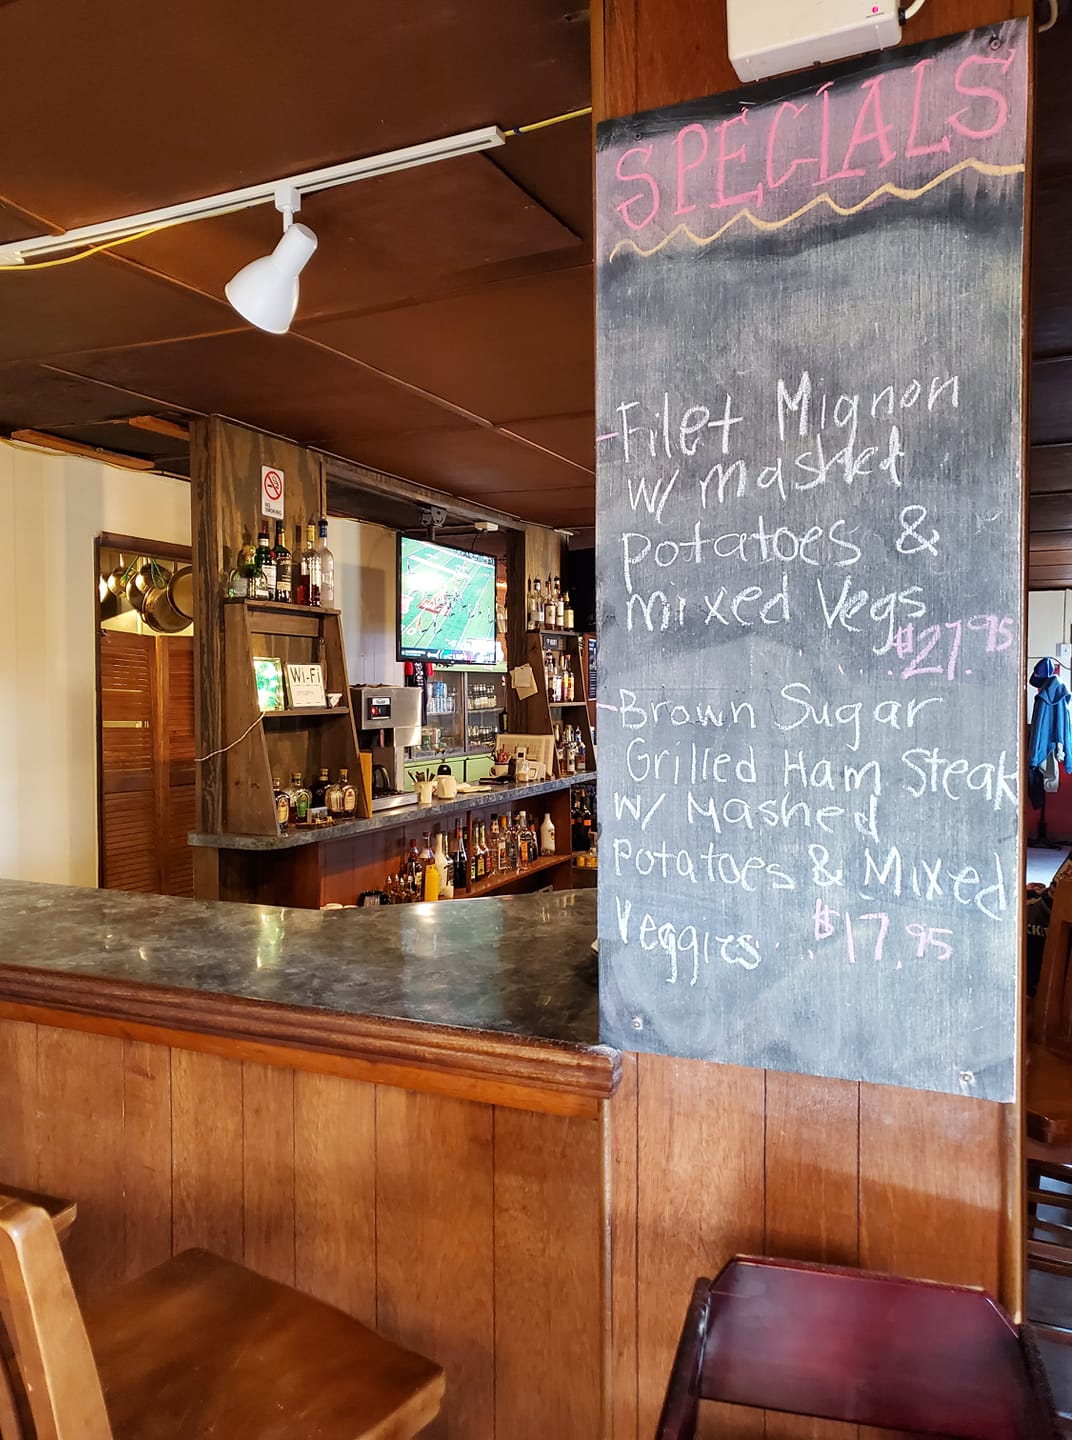 SPECIALS
-Filet Mignon
w/ mashed
potatoes &
mixed Vegs
$27.95
-Brown Sugar
Grilled Ham Steak
w/ Mashed
potatoes & Mixed
Veggies $17.95
NO
SMOKING
Wi-Fi